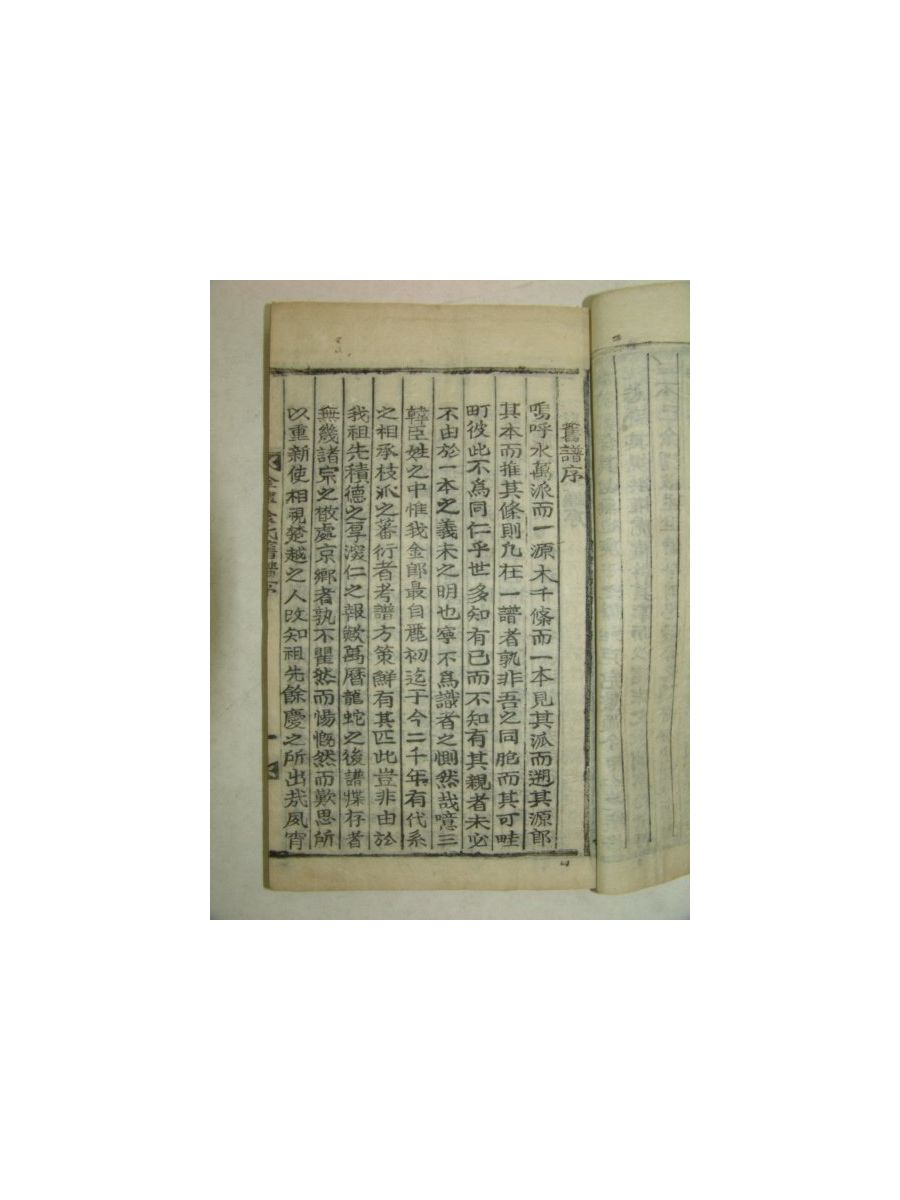 舊譜序
嗚呼水萬派而一源木千條而一本見其派而遡其源郎
其本而推其條則凢在一譜者孰非吾之同胞而其可畦
町彼此不爲同仁乎世多知有已而不知有其親者未必
不由於一本之義未之明也寧不爲識者之惻然哉噫三
韓臣姓之中惟我金郎最自麗初迄于今二千年有代系
之相承枝派之蕃衍者考譜方策鮮有其匹此豈非由於
我祖先積德之厚深仁之報歟萬曆龍蛇之後譜牒存者
無幾諸宗之散處京鄉者孰不瞿然而惕慨然而歎思所
以重新使相視楚越之人改知祖先餘慶之所出哉夙宵
氏舊譜序
一